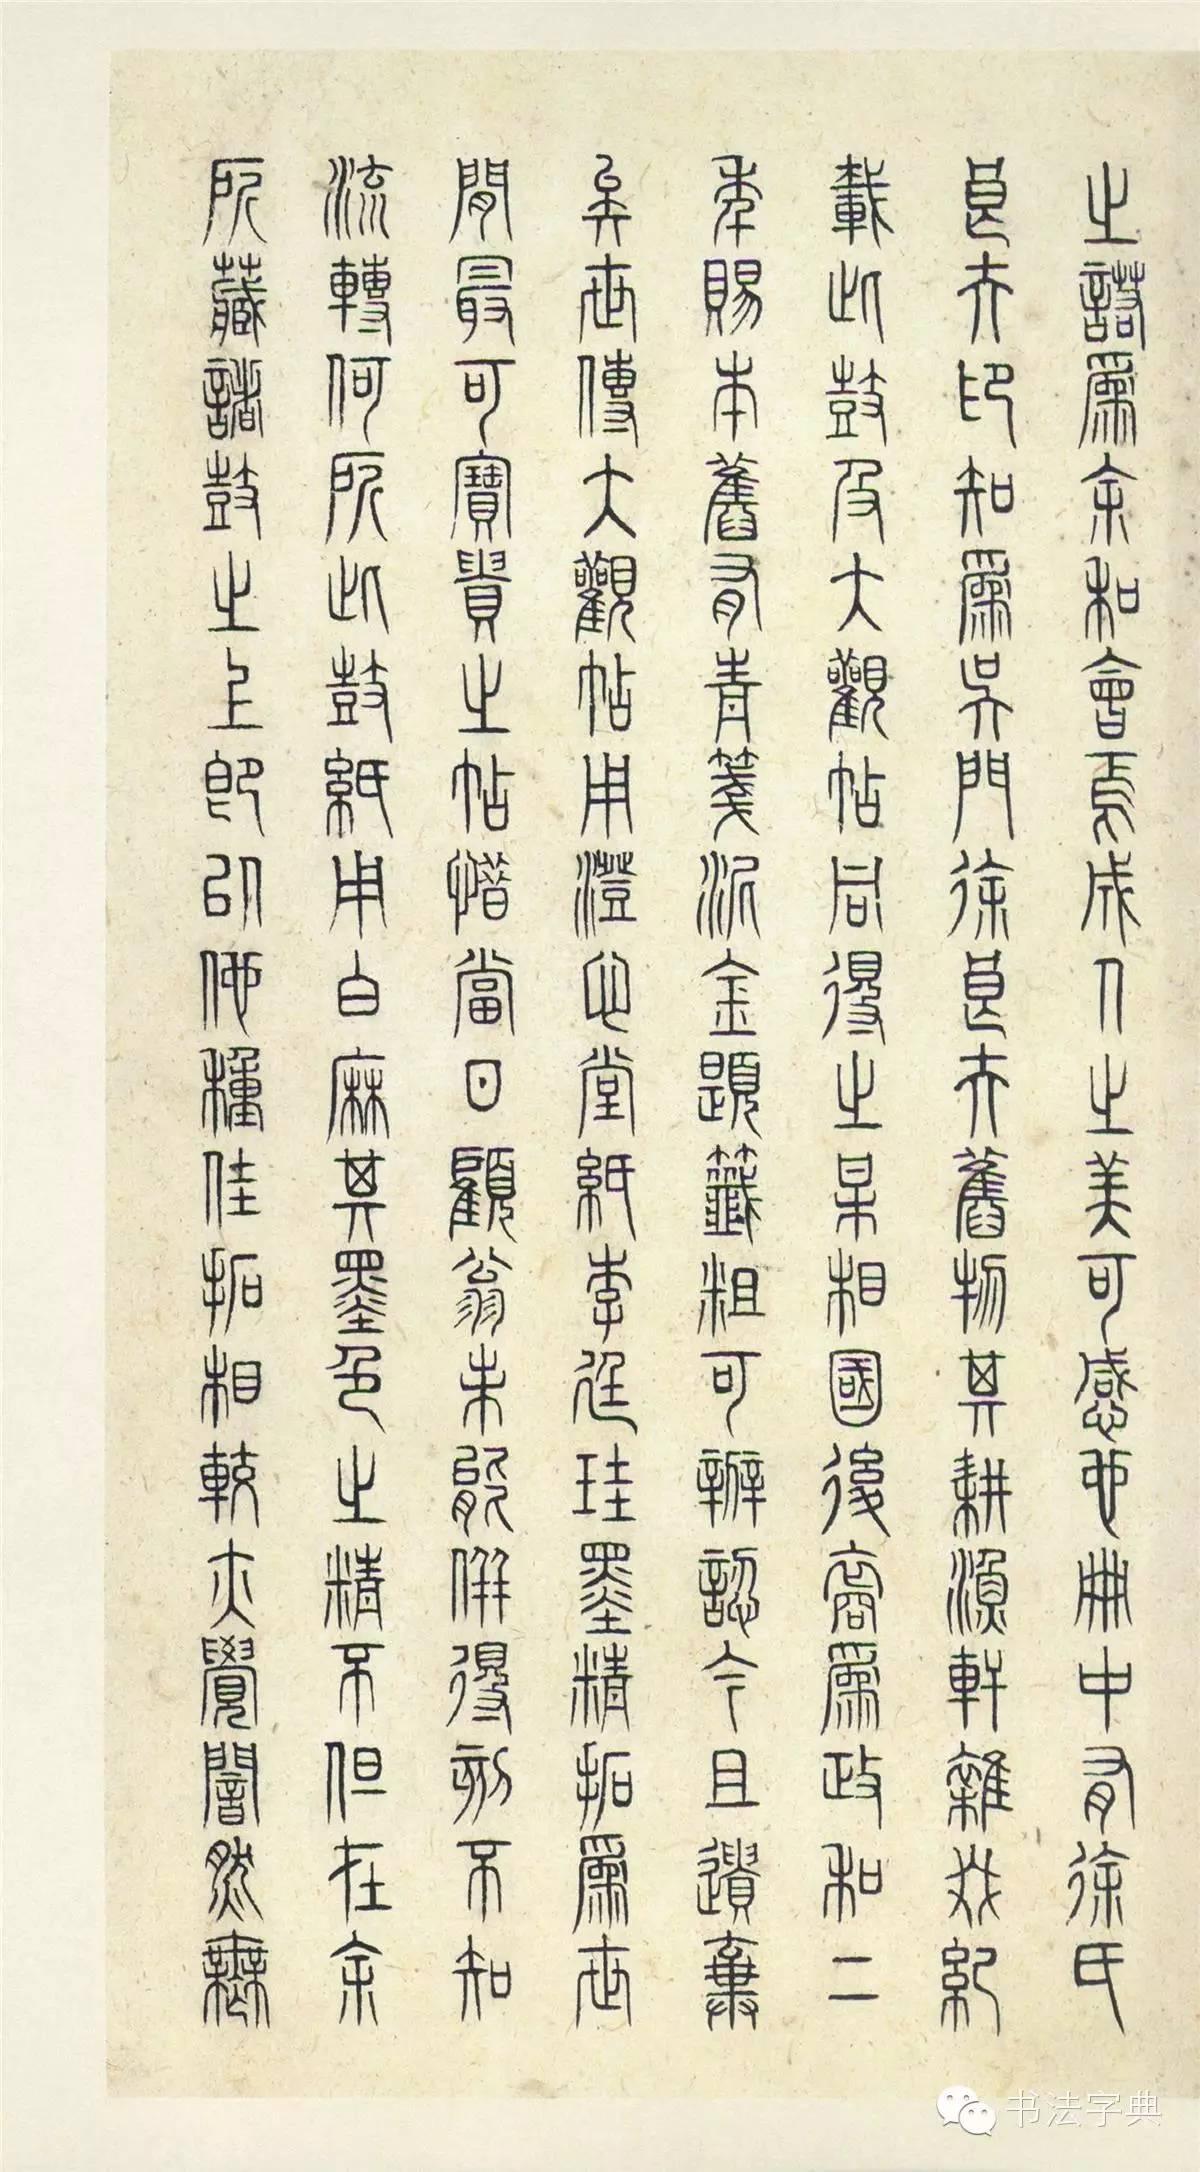 之諾為余和會成人之美可感也冊中有徐氏
良夫印知為吳門徐良夫舊物其耕漁軒雜紀
載此鼓及大觀帖同得之某相國後裔為政和二
年賜本舊有青箋泥金題籤粗可辨認今且遺棄
矣世傳大觀帖用澄心堂紙李廷珪墨精拓為世
間最可寶貴之帖惜當日顧翁未能併得刻不知
流轉何所此鼓紙用白麻其墨色之精不但在余
所藏諸鼓之上即以他種佳拓相較亦覺闇然無
书法字典